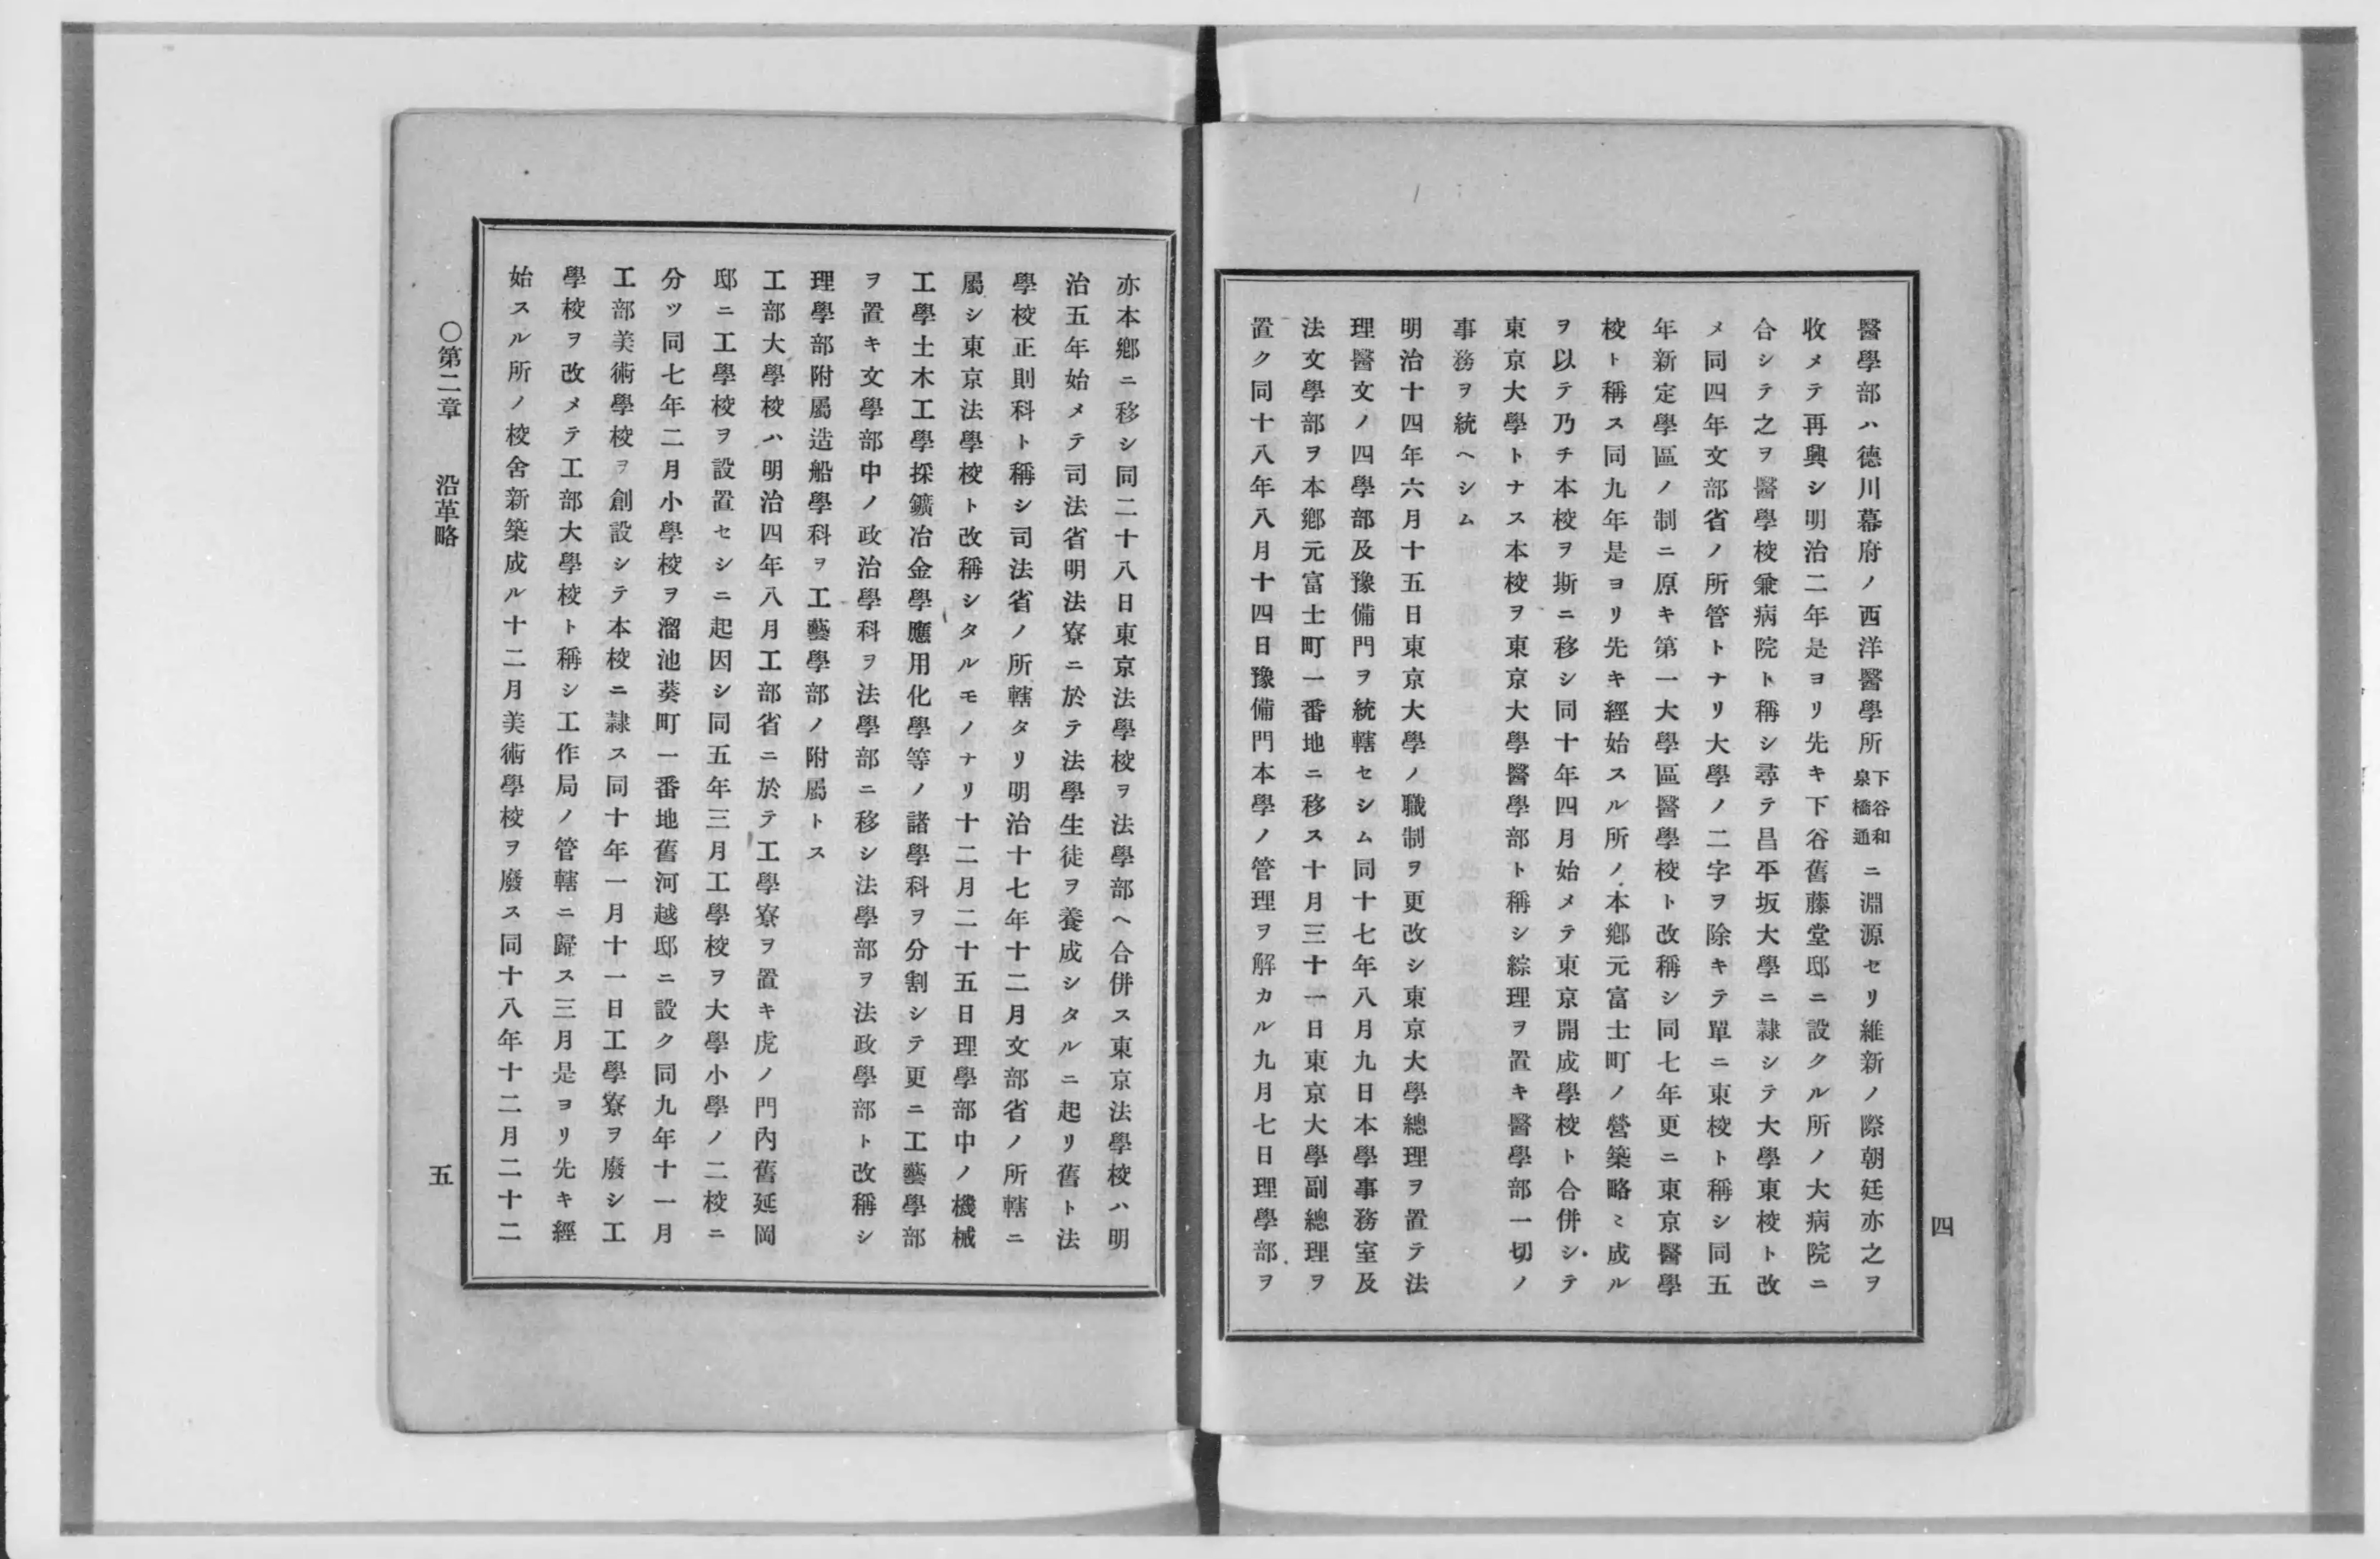 四
醫學部ハ德川幕府ノ西洋醫學所下谷和泉橋通ニ淵源セリ維新ノ際朝廷亦之ヲ
收メテ再興シ明治二年是ヨリ先キ下谷舊藤堂邸ニ設クル所ノ大病院ニ
合シテ之ヲ醫學校兼病院ト稱シ尋テ昌平坂大學ニ隷シテ大學東校ト改
メ同四年文部省ノ所管トナリ大學ノ二字ヲ除キテ單ニ東校ト稱シ同五
年新定學區ノ制ニ原キ第一大學區醫學校ト改稱シ同七年更ニ東京醫學
校ト稱ス同九年是ヨリ先キ經始スル所ノ本鄕元富士町ノ營築略ミ成ル
ヲ以テ乃チ本校ヲ斯ニ移シ同十年四月始メテ東京開成學校ト合併シテ
東京大學トナス本校ヲ東京大學醫學部ト稱シ綜理ヲ置キ醫學部一切ノ
事務ヲ統ヘシム
明治十四年六月十五日東京大學ノ職制ヲ更改シ東京大學總理ヲ置テ法
理醫文ノ四學部及豫備門ヲ統轄セシム同十七年八月九日本學事務室及
法文學部ヲ本鄕元富士町一番地ニ移ス十月三十一日東京大學副總理ヲ
置ク同十八年八月十四日豫備門本學ノ管理ヲ解カル九月七日理學部ヲ
亦本鄕ニ移シ同二十八日東京法學校ヲ法學部ヘ合併ス東京法學校ハ明
治五年始メテ司法省明法寮ニ於テ法學生徒ヲ養成シタルニ起リ舊ト法
學校正則科ト稱シ司法省ノ所轄タリ明治十七年十二月文部省ノ所轄ニ
屬シ東京法學校ト改稱シタルモノナリ十二月二十五日理學部中ノ機械
工學土木工學採鑛冶金學應用化學等ノ諸學科ヲ分割シテ更ニ工藝學部
ヲ置キ文學部中ノ政治學科ヲ法學部ニ移シ法學部ヲ法政學部ト改稱シ
理學部附屬造船學科ヲ工藝學部ノ附屬トス
工部大學校ハ明治四年八月工部省ニ於テ工學寮ヲ置キ虎ノ門內舊延岡
邸ニ工學校ヲ設置セシニ起因シ同五年三月工學校ヲ大學小學ノ二校ニ
分ツ同七年二月小學校ヲ溜池葵町一番地舊河越邸ニ設ク同九年十一月
工部美術學校ヲ創設シテ本校ニ隷ス同十年一月十一日工學寮ヲ廢シ工
學校ヲ改メテ工部大學校ト稱シ工作局ノ管轄ニ歸ス三月是ヨリ先キ經
始スル所ノ校舍新築成ル十二月美術學校ヲ廢ス同十八年十二月二十二
○第二章 沿革略
五